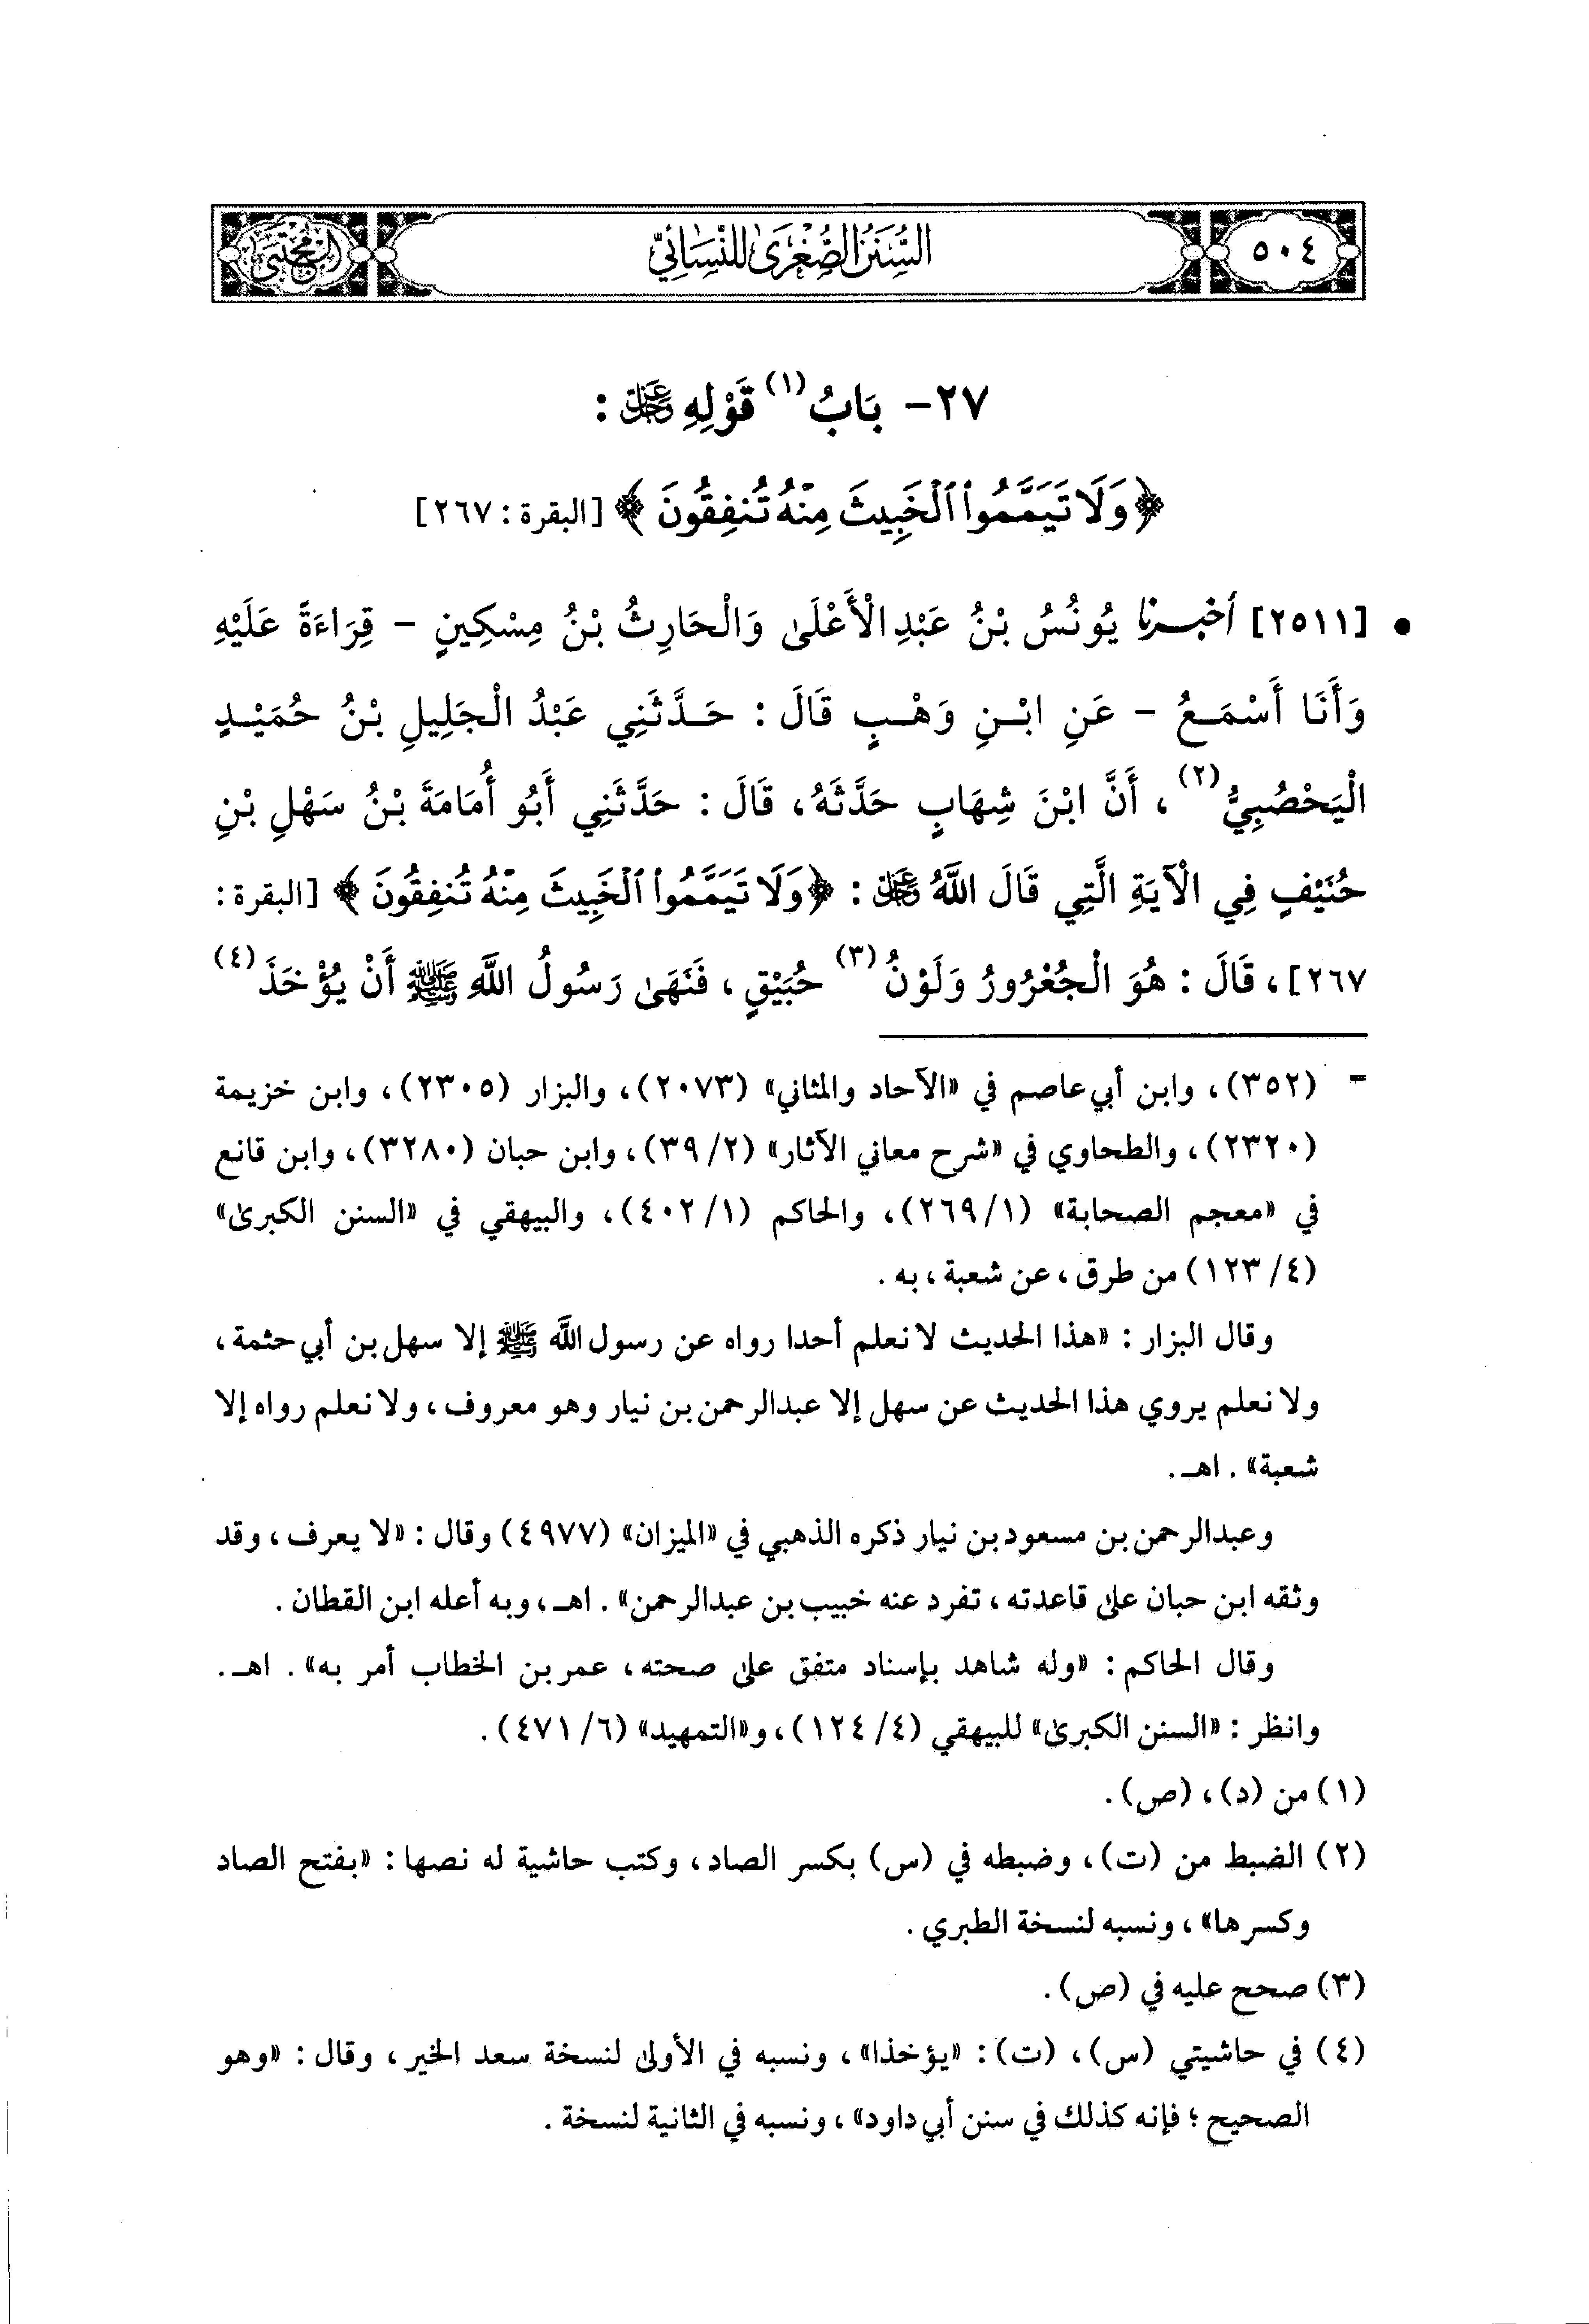 ٥٠٤
السُّنَنُ الصُّغْرَىٰ لِلنَّسَائِيِّ
المجتبى
٢٧- بَابُ(١) قَوْلِهِ عَزَّ وَجَلَّ :
﴿وَلَا تَيَمَّمُوا۟ ٱلْخَبِيثَ مِنْهُ تُنفِقُونَ﴾ [البقرة : ٢٦٧]
• [٢٥١١] أخبرنا يُونُسُ بْنُ عَبْدِ الْأَعْلَىٰ وَالْحَارِثُ بْنُ مِسْكِينٍ - قِرَاءَةً عَلَيْهِ
وَأَنَا أَسْمَعُ - عَنِ ابْنِ وَهْبٍ قَالَ : حَدَّثَنِي عَبْدُ الْجَلِيلِ بْنُ حُمَيْدٍ
الْيَحْصُبِيُّ(٢)، أَنَّ ابْنَ شِهَابٍ حَدَّثَهُ، قَالَ : حَدَّثَنِي أَبُو أُمَامَةَ بْنُ سَهْلِ بْنِ
حُنَيْفٍ فِي الْآيَةِ الَّتِي قَالَ اللَّهُ عَزَّ وَجَلَّ : ﴿وَلَا تَيَمَّمُوا۟ ٱلْخَبِيثَ مِنْهُ تُنفِقُونَ﴾ [البقرة :
٢٦٧]، قَالَ : هُوَ الْجُعْرُورُ وَلَوْنُ(٣) حُبَيْقٍ، فَنَهَىٰ رَسُولُ اللَّهِ ﷺ أَنْ يُؤْخَذَ(٤)
= (٣٥٢)، وابن أبي عاصم في «الآحاد والمثاني» (٢٠٧٣)، والبزار (٢٣٠٥)، وابن خزيمة
(٢٣٢٠)، والطحاوي في «شرح معاني الآثار» (٢/ ٣٩)، وابن حبان (٣٢٨٠)، وابن قانع
في «معجم الصحابة» (١/ ٢٦٩)، والحاكم (١/ ٤٠٢)، والبيهقي في «السنن الكبرىٰ»
(٤/ ١٢٣) من طرق، عن شعبة، به .
وقال البزار : «هذا الحديث لا نعلم أحدا رواه عن رسول اللَّه ﷺ إلا سهل بن أبي حثمة،
ولا نعلم يروي هذا الحديث عن سهل إلا عبدالرحمن بن نيار وهو معروف، ولا نعلم رواه إلا
شعبة» . اهـ.
وعبدالرحمن بن مسعود بن نيار ذكره الذهبي في «الميزان» (٤٩٧٧) وقال : «لا يعرف، وقد
وثقه ابن حبان علىٰ قاعدته، تفرد عنه خبيب بن عبدالرحمن» . اهـ، وبه أعله ابن القطان .
وقال الحاكم : «وله شاهد بإسناد متفق علىٰ صحته، عمر بن الخطاب أمر به» . اهـ.
وانظر : «السنن الكبرىٰ» للبيهقي (٤/ ١٢٤)، و«التمهيد» (٦/ ٤٧١).
(١) من (د)، (ص).
(٢) الضبط من (ت)، وضبطه في (س) بكسر الصاد، وكتب حاشية له نصها : «بفتح الصاد
وكسرها»، ونسبه لنسخة الطبري .
(٣) صحح عليه في (ص).
(٤) في حاشيتي (س)، (ت): «يؤخذا»، ونسبه في الأولىٰ لنسخة سعد الخير، وقال : «وهو
الصحيح؛ فإنه كذلك في سنن أبي داود»، ونسبه في الثانية لنسخة .